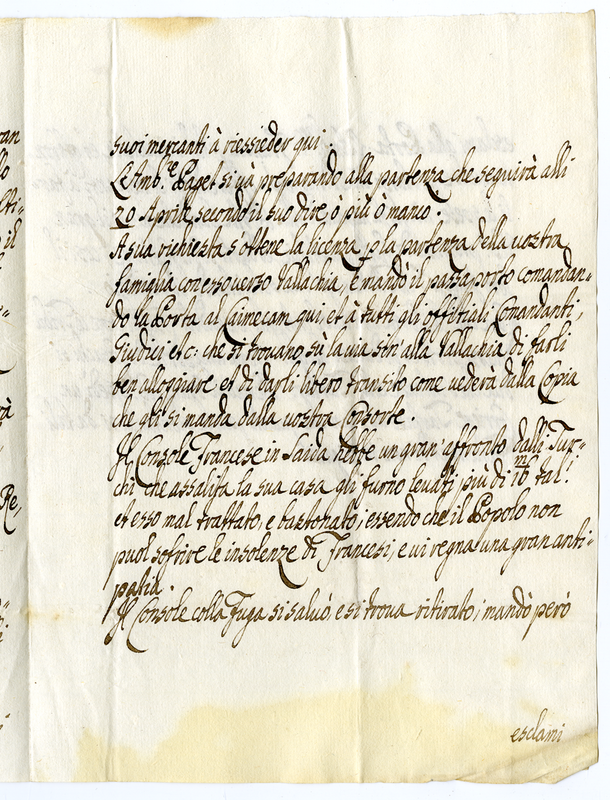 suoi mercanti à riessieder qui.
L'Amb.re Paget si và preparando alla partenza che seguirà alli
20 Aprile secondo il suo dire ò più ò manco.
A sua richiesta s'ottene la licenza p la partenza della vostra
famiglia con esso verso Vallachia, e mandò il passaporto comandan-
do la Porta al Caimecam qui, et à tutti gli offitiali Comandanti,
Giudici etc: che si trovano sù la via sin' alla Vallachia di farli
ben alloggiare et di darli libero transito come vederà dalla Copia
che gli si manda dalla vostra Consorte.
Il Console Francese in Saida hebbe un gran' affronto dalli Tur-
chi che assalita la sua casa gli furno levati più di 16 m tal:i
et esso mal trattato, e bastonato; essendo che il Popolo non
puol sofrire le insolenze di Francesi, e vi regna una gran anti-
patia.
Il Console colla Fuga si salvò, e si trova ritirato; mandò però
esclami
ran
llo
il
Re,